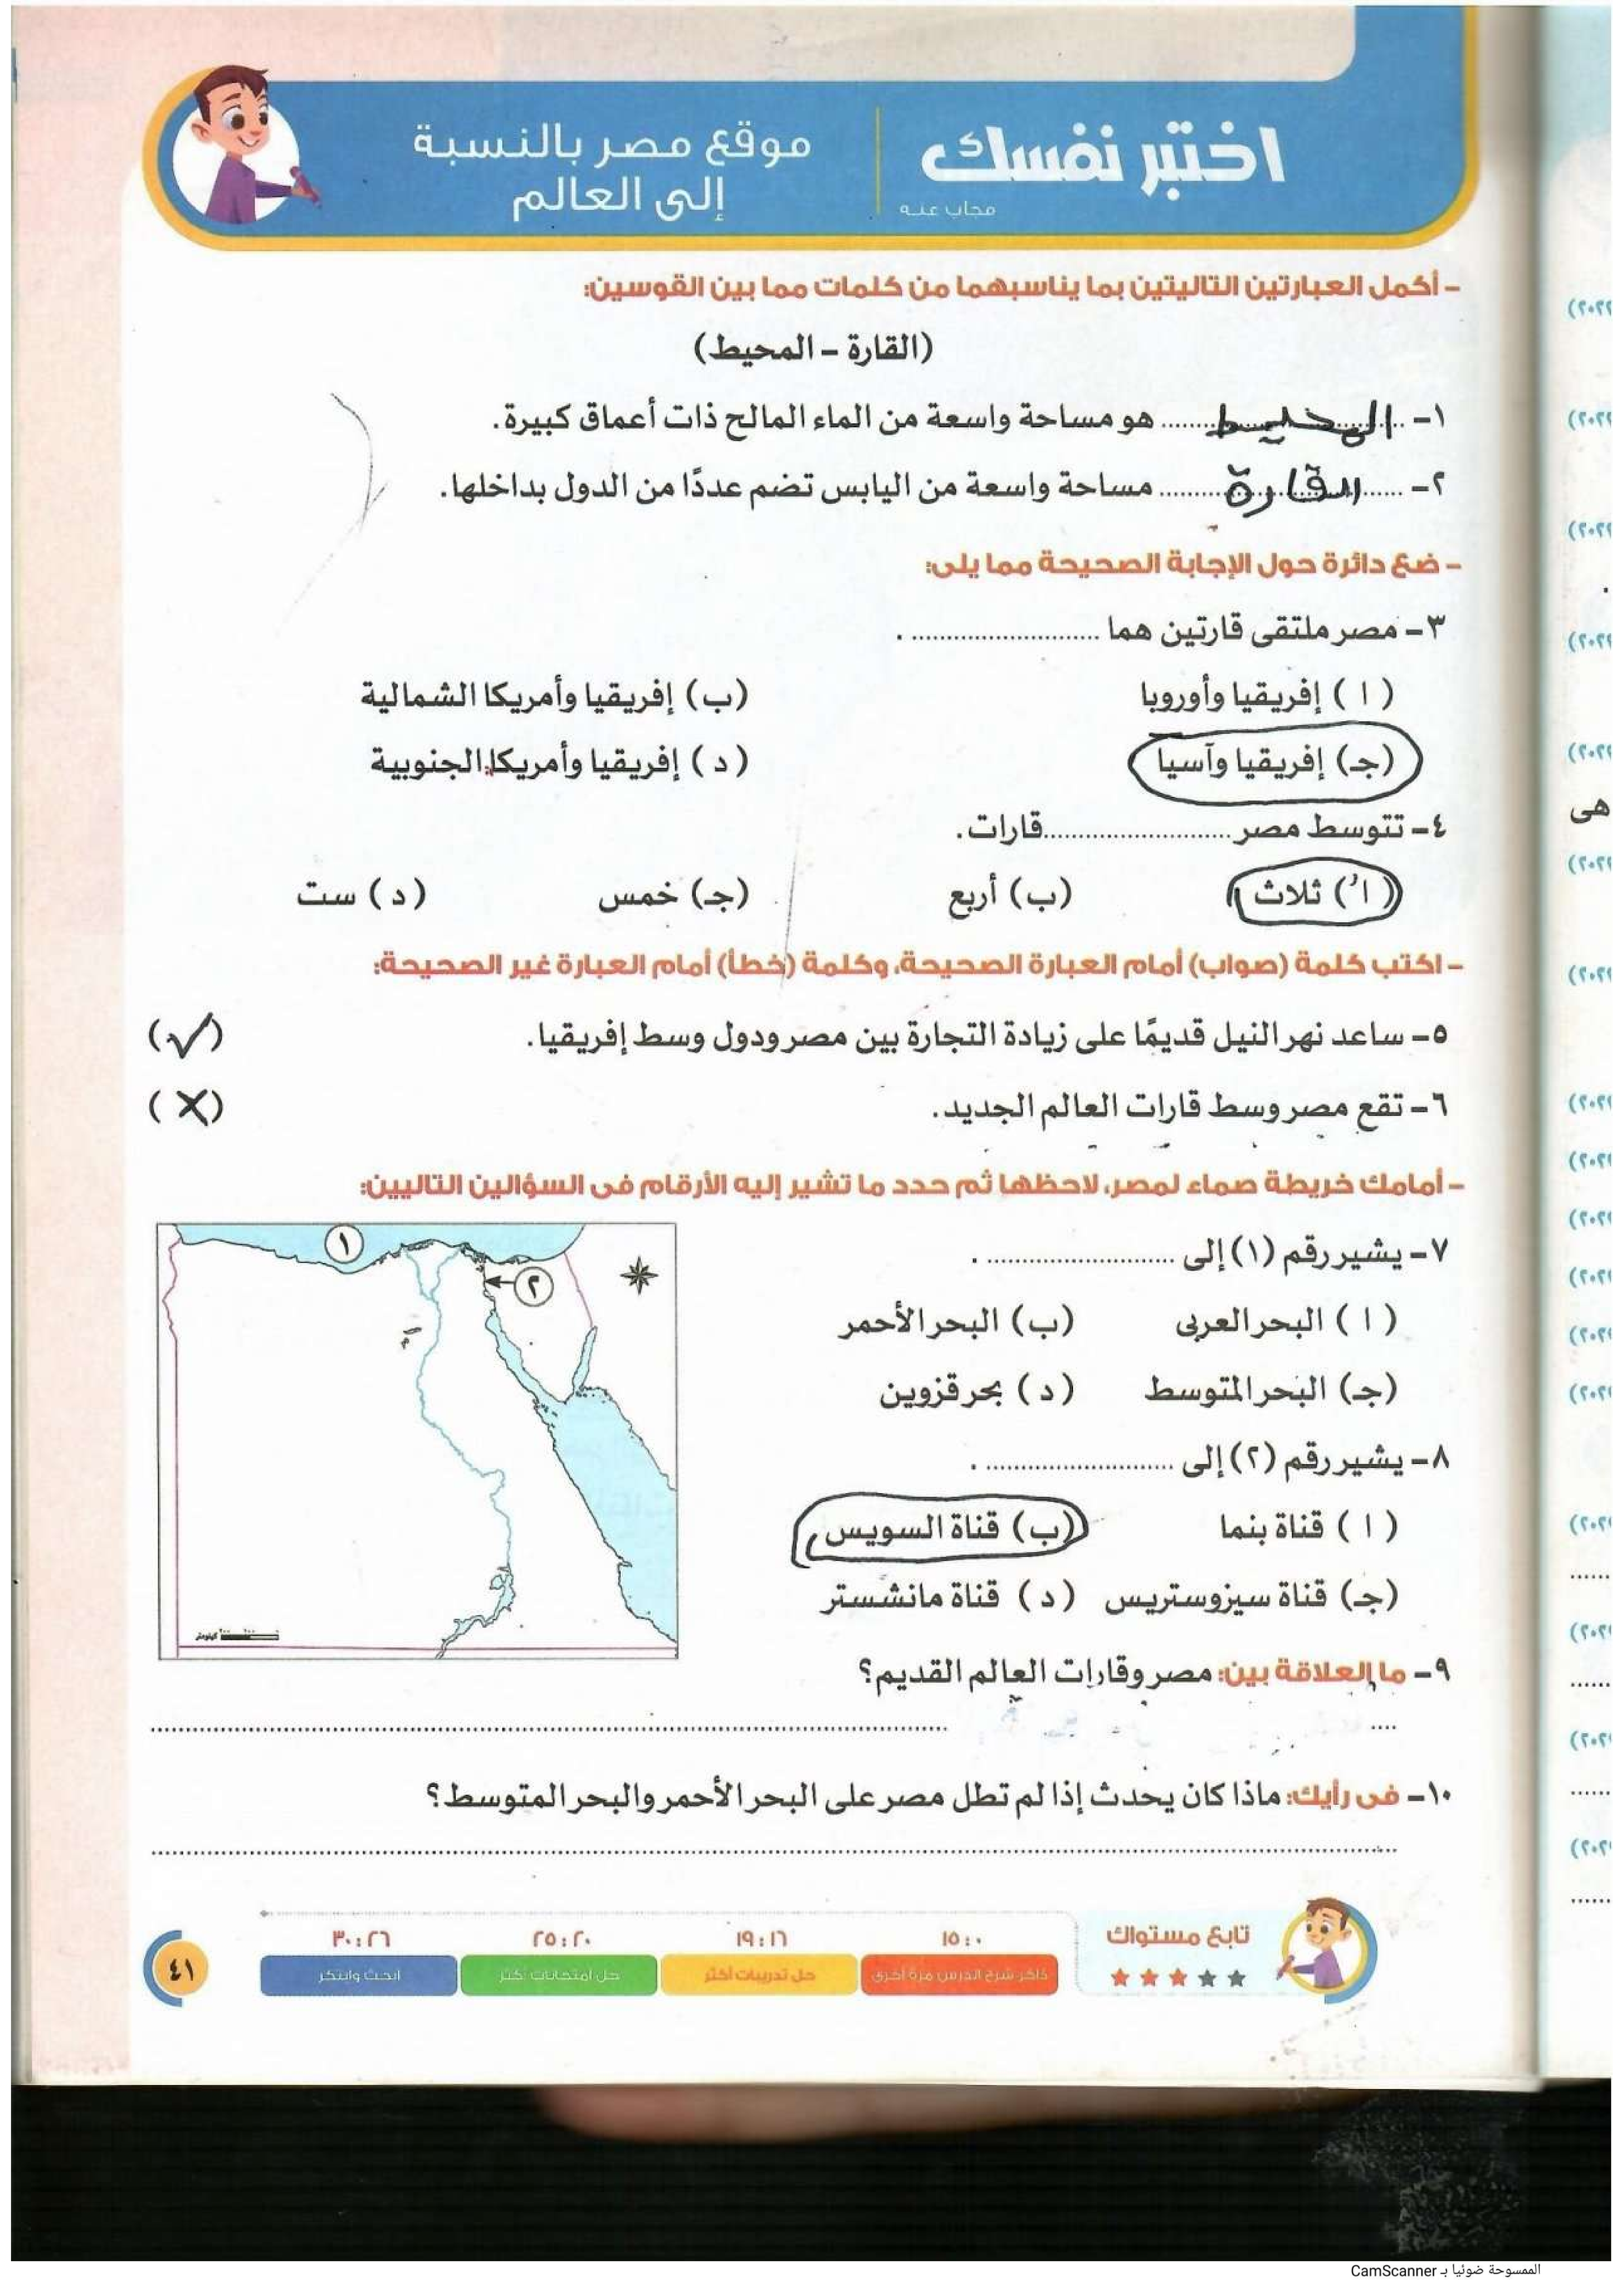 اختبر نفسك
مجاب عنه
موقع مصر بالنسبة
إلى العالم
- أكمل العبارتين التاليتين بما يناسبهما من كلمات مما بين القوسين:
(القارة - المحيط)
١- المحيط هو مساحة واسعة من الماء المالح ذات أعماق كبيرة.
٢- القارة مساحة واسعة من اليابس تضم عددًا من الدول بداخلها.
- ضع دائرة حول الإجابة الصحيحة مما يلى:
٣- مصر ملتقى قارتين هما .......................... .
( ا ) إفريقيا وأوروبا (ب) إفريقيا وأمريكا الشمالية
(جـ) إفريقيا وآسيا ( د ) إفريقيا وأمريكا الجنوبية
٤- تتوسط مصر .......................... قارات.
( ا ) ثلاث (ب) أربع (جـ) خمس ( د ) ست
- اكتب كلمة (صواب) أمام العبارة الصحيحة، وكلمة (خطأ) أمام العبارة غير الصحيحة:
٥- ساعد نهر النيل قديمًا على زيادة التجارة بين مصر ودول وسط إفريقيا. (✓)
٦- تقع مصر وسط قارات العالم الجديد. (X)
- أمامك خريطة صماء لمصر، لاحظها ثم حدد ما تشير إليه الأرقام فى السؤالين التاليين:
٧- يشير رقم (١) إلى .......................... .
( ا ) البحر العربى (ب) البحر الأحمر
(جـ) البحر المتوسط ( د ) بحر قزوين
٨- يشير رقم (٢) إلى .......................... .
( ا ) قناة بنما (ب) قناة السويس
(جـ) قناة سيزوستريس ( د ) قناة مانشستر
١
٢
كيلومتر
٩- ما العلاقة بين: مصر وقارات العالم القديم؟
١٠- فى رأيك: ماذا كان يحدث إذا لم تطل مصر على البحر الأحمر والبحر المتوسط؟
تابع مستواك
٠ : ١٥
١٦ : ١٩
٢٠ : ٢٥
٢٦ : ٣٠
ذاكر شرح الدرس مرة أخرى
حل تدريبات أكثر
حل امتحانات أكثر
ابحث وابتكر
٤١
هى
الممسوحة ضوئيا بـ CamScanner